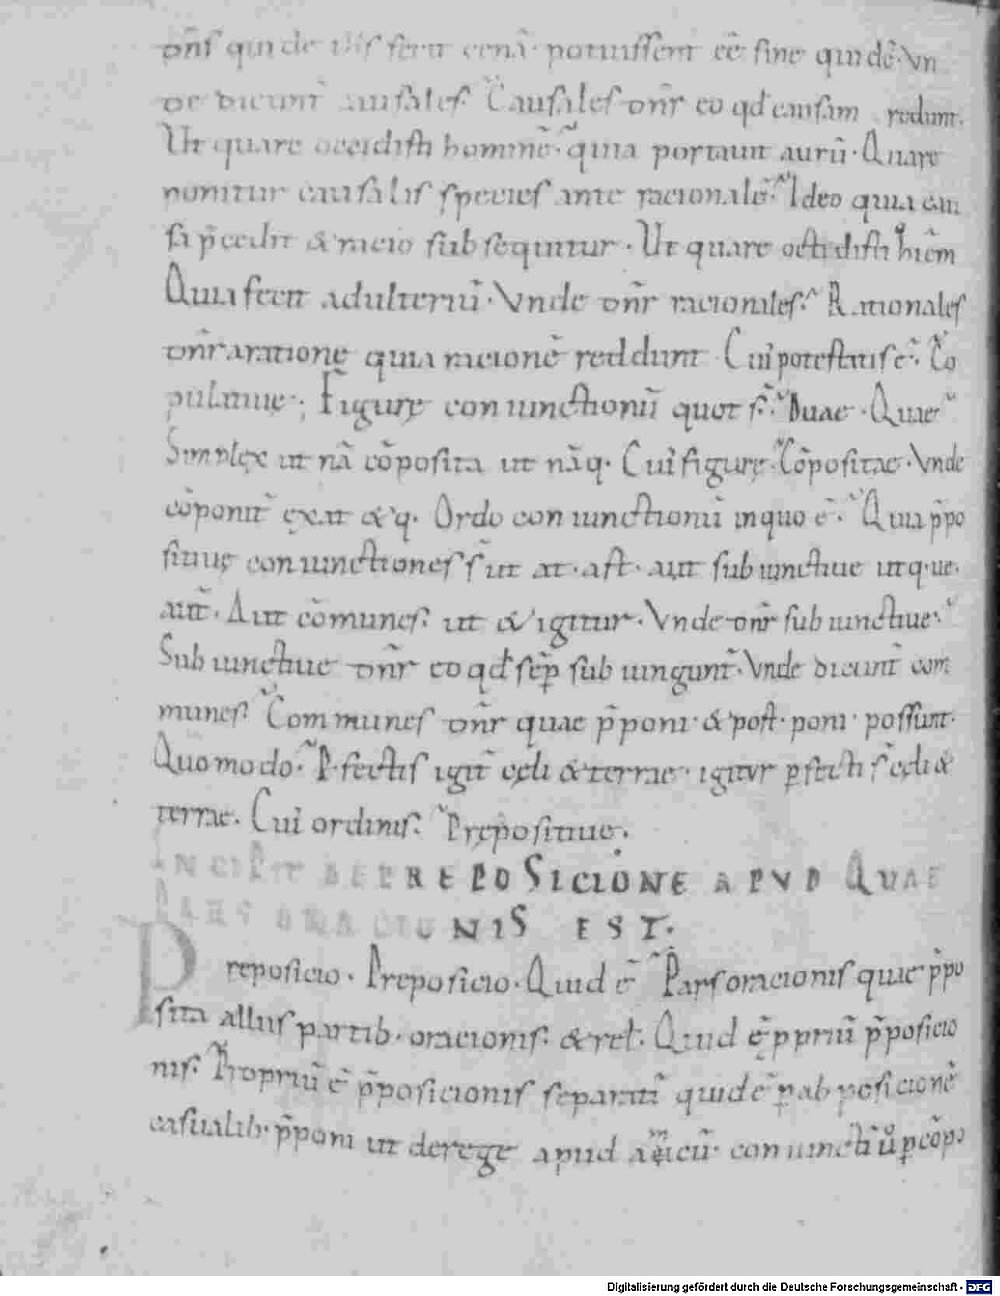 qui de potuissent eē sine qui dē· Un
de dicunt̄ causales. Causales dn̄r eo qđ causam redunt.
Ut quare occidisti hominē· quia portauit aurū· Quare
nonitur causalis species ante racionale· Ideo quia cau
sa p̄cedit & racio subsequitur· Ut quare occidisti
Quia fecit adulteriū· Unde dn̄r racionales. Rationales
dn̄r aratione quia racionē reddunt Cui potestatis ē· Co
pulatiuę· Figurę coniunctionū quot s̄· Duae· Quae
Simplex ut nā cōposita ut nāq· Cui figurę· Cōpositae· Unde
cōponit̄ ex at & q· Ordo coniunctionū inquo ē· Quia p̄po
sitiuę coniunctiones s̄ ut at· ast· aut subiunctiue ut q· ue·
aut̄· Aut cōmunes. ut & igitur· Unde dn̄r subiunctiue·
Subiunctiue dn̄r eo qđ sēp subiungunt̄· Unde dicunt̄ com
munes. Communes dn̄r quae p̄poni· & post· poni· possunt·
Quomodo· P·fectis igit̄ cęli & terrae· igitur pfecti s̄ cęli &
terrae. Cui ordinis. Prępositiuę·
INCIPIT DE PREPOSICIONE APUD QUAE
PARS ORACIONIS EST·
Preposicio· Preposicio· Quid ē Pars oracionis quae p̄po
sita aliis partib· oracionis. & rel· Quid ē ppriū p̄posicio
nis. Propriū ē p̄posicionis separati quidē
casualib· p̄poni ut derege apud amicū· coniuncti
Digitalisierung gefördert durch die Deutsche Forschungsgemeinschaft - DFG